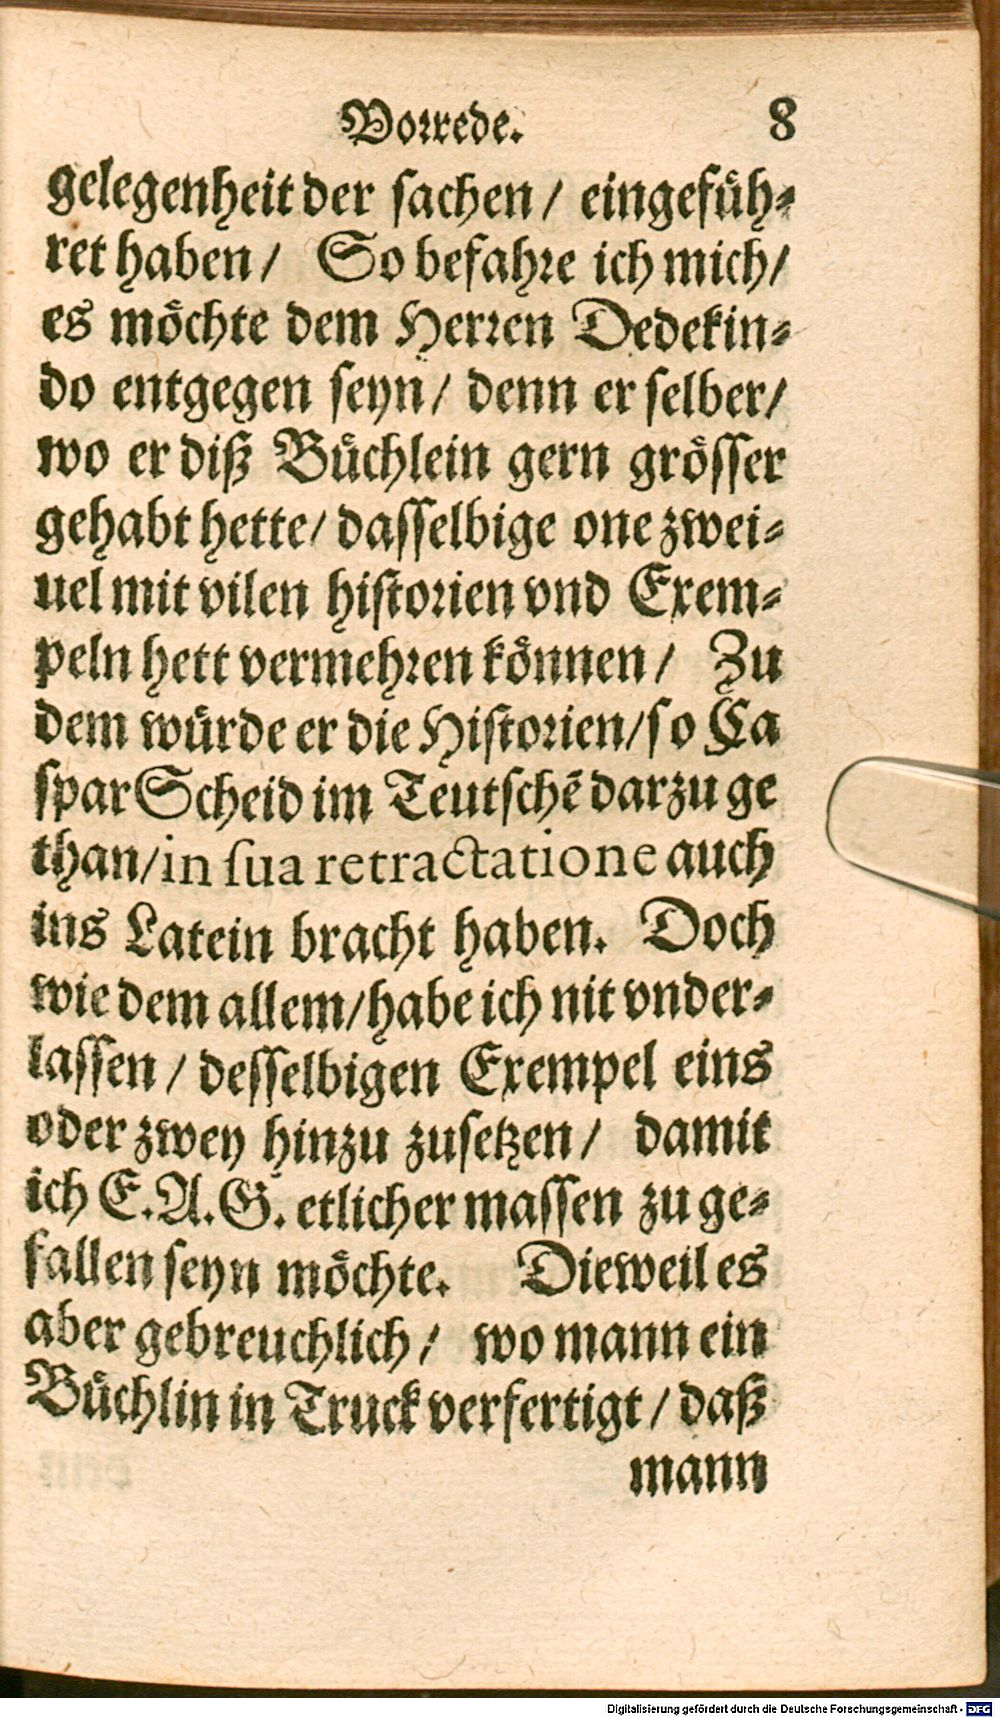 Vorrede. 8
gelegenheit der sachen / eingefüh⸗
ret haben / So befahre ich mich /
es möchte dem Herren Dedekin⸗
do entgegen seyn / denn er selber /
wo er diß Büchlein gern grösser
gehabt hette / dasselbige one zwei⸗
uel mit vilen historien vnd Exem⸗
peln hett vermehren können / Zu
dem würde er die Historien / so Ca
spar Scheid im Teutschē darzu ge
than / in sua retractatione auch
ins Latein bracht haben. Doch
wie dem allem / habe ich nit vnder⸗
lassen / desselbigen Exempel eins
oder zwey hinzu zusetzen / damit
ich E. A. G. etlicher massen zu ge⸗
fallen seyn möchte. Dieweil es
aber gebreuchlich / wo mann ein
Büchlin in Truck verfertigt / daß
mann
Digitalisierung gefördert durch die Deutsche Forschungsgemeinschaft - DFG